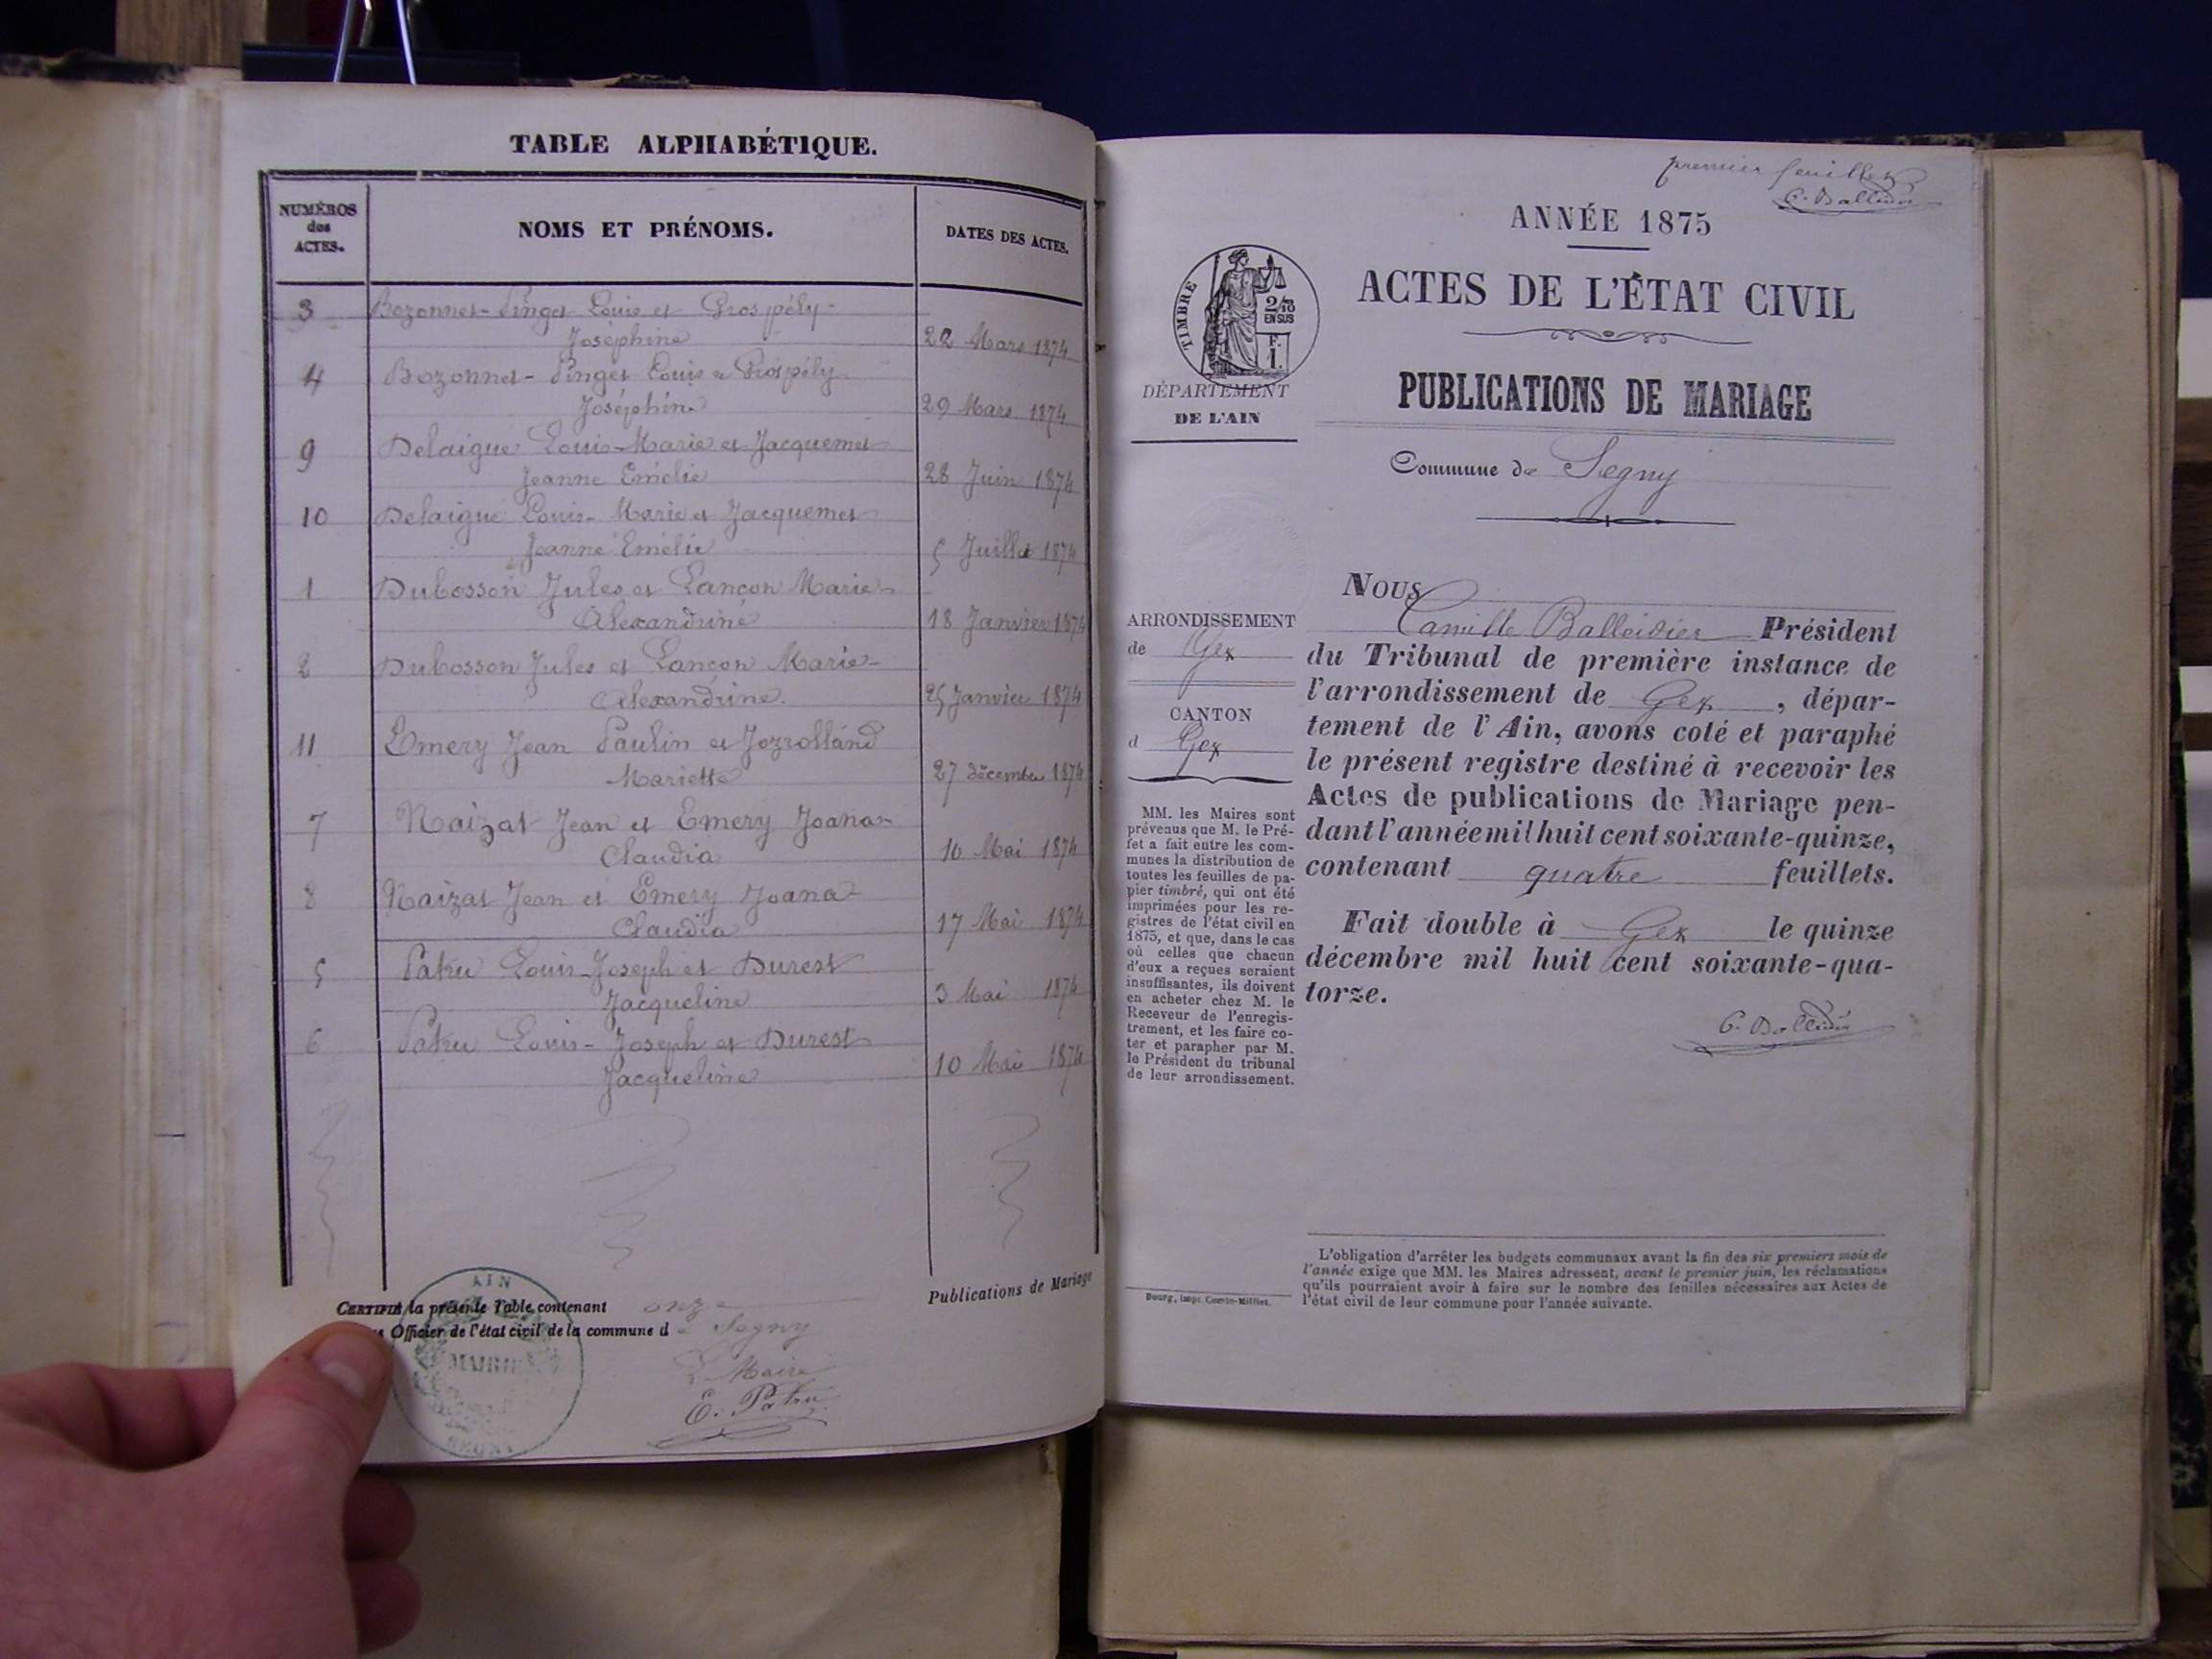 TABLE ALPHABÉTIQUE.
NUMÉROS
des
ACTES.
NOMS ET PRÉNOMS.
DATES DES ACTES.
3 Bozonnet-Pinget Louis et Grospély-
Joséphine 22 Mars 1874
4 Bozonnet-Pinget Louis et Grospély
Joséphine 29 Mars 1874
9 Delaigue Louis-Marie et Jacquemet
Jeanne Emélie 28 Juin 1874
10 Delaigue Louis-Marie et Jacquemet
Jeanne Emélie 5 Juillet 1874
1 Dubosson Jules et Lançon Marie-
Alexandrine 18 Janvier 1874
2 Dubosson Jules et Lançon Marie-
Alexandrine. 25 Janvier 1874
11 Emery Jean Paulin et
Mariette 27 décembre 1874
7 Naizat Jean et Emery Joana-
Claudia 10 Mai 1874
8 Naizat Jean et Emery Joana-
Claudia 17 Mai 1874
5 Patru Louis-Joseph et Durest
Jacqueline 3 Mai 1874
6 Patru Louis-Joseph et Durest
Jacqueline 10 Mai 1874
Publications de Mariage
CERTIFIÉ la présente Table contenant onze
Officier de l'état civil de la commune de Segny
Le Maire
E. Patru
AIN
MAIRIE
SEGNY
premier feuillet
C. Balleidier
ANNÉE 1875
ACTES DE L'ÉTAT CIVIL
TIMBRE
2/10
EN SUS
F.
1.
DÉPARTEMENT
DE L'AIN
PUBLICATIONS DE MARIAGE
Commune de Segny
ARRONDISSEMENT
de Gex
CANTON
d Gex
MM. les Maires sont
prévenus que M. le Pré-
fet a fait entre les com-
munes la distribution de
toutes les feuilles de pa-
pier timbré, qui ont été
imprimées pour les re-
gistres de l'état civil en
1875, et que, dans le cas
où celles que chacun
d'eux a reçues seraient
insuffisantes, ils doivent
en acheter chez M. le
Receveur de l'enregis-
trement, et les faire co-
ter et parapher par M.
le Président du tribunal
de leur arrondissement.
NOUS
Camille Balleidier Président
du Tribunal de première instance de
l'arrondissement de Gex, dépar-
tement de l'Ain, avons coté et paraphé
le présent registre destiné à recevoir les
Actes de publications de Mariage pen-
dant l'année mil huit cent soixante-quinze,
contenant quatre feuillets.
Fait double à Gex le quinze
décembre mil huit cent soixante-qua-
torze.
C. Balleidier
L'obligation d'arrêter les budgets communaux avant la fin des six premiers mois de
l'année exige que MM. les Maires adressent, avant le premier juin, les réclamations
qu'ils pourraient avoir à faire sur le nombre des feuilles nécessaires aux Actes de
l'état civil de leur commune pour l'année suivante.
Bourg, impr. Comte-Milliet.